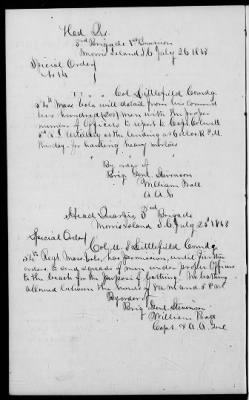 Head Qrs.
3rd Brigade 1st Division
Morris Island S.C. July 26 1863
Special Order
No 14
Col Littlefield Comdg
54th Mass Vols will detail from his command
two hundred (200) men with the proper
number of Officers to report to Capt
Artillery at the landing at 6 oclock P.M.
this day for hauling heavy
By order of
Brig Genl Stevenson
William
A.A.G
Head Quarters 3rd Brigade
Morris Island S.C. July 25th 1863
Special Order
Col. M. S. Littlefield Comdg
54th Regt Mass Vols, has permission, until further
orders to send squads of men under proper officers
to the beach for the purpose of bathing. No bathing
allowed between the hours 9 a.m. and 5 P.M.
By order of
Brig Genl Stevenson
William
Capt & A.A. Genl